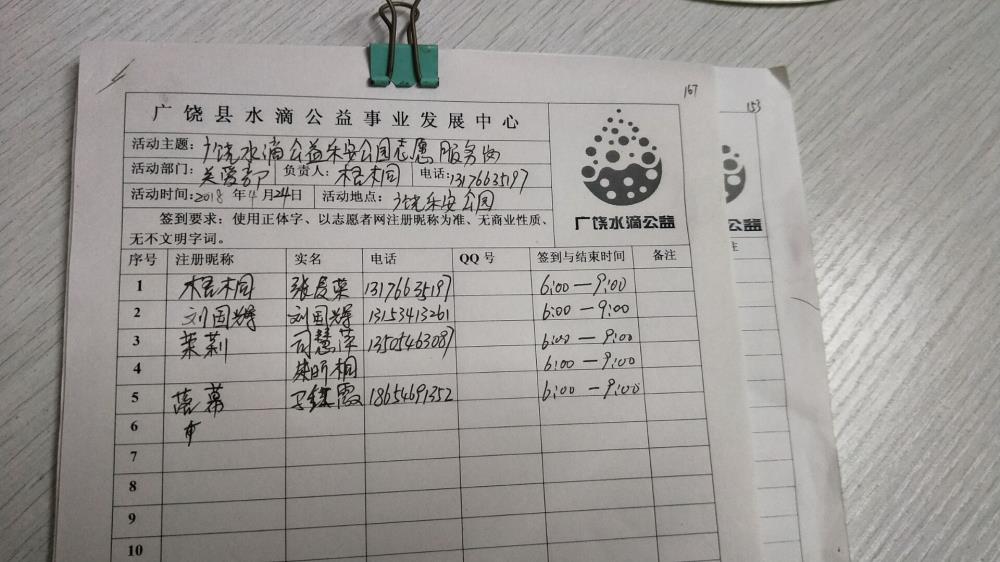 167
153
广饶县水滴公益事业发展中心
活动主题：广饶水滴公益乐安公园志愿服务岗
活动部门：关爱部 负责人：梧桐 电话：13176635197
活动时间：2018年4月24日 活动地点：广饶乐安公园
签到要求：使用正体字、以志愿者网注册昵称为准、无商业性质、
无不文明字词。
广饶水滴公益
公益
序号 注册昵称 实名 电话 QQ号 签到与结束时间 备注
注
1 梧桐 张爱荣 13176635197 6:00—9:00
2 刘国辉 刘国辉 13153413261 6:00—9:00
3 茉莉 司慧萍 13505463087 6:00—9:00
4 6:00—9:00
5 18654691352 6:00—9:00
6
7
8
9
10